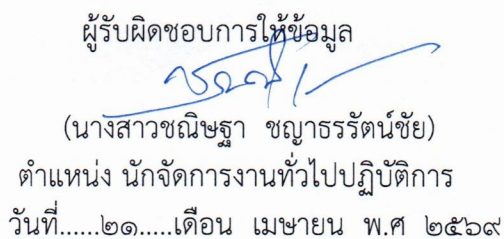 ผู้รับผิดชอบการให้ข้อมูล
(นางสาวชณิษฐา ชญาธรรัตน์ชัย)
ตำแหน่ง นักจัดการงานทั่วไปปฏิบัติการ
วันที่......๒๑.....เดือน เมษายน พ.ศ ๒๕๖๙